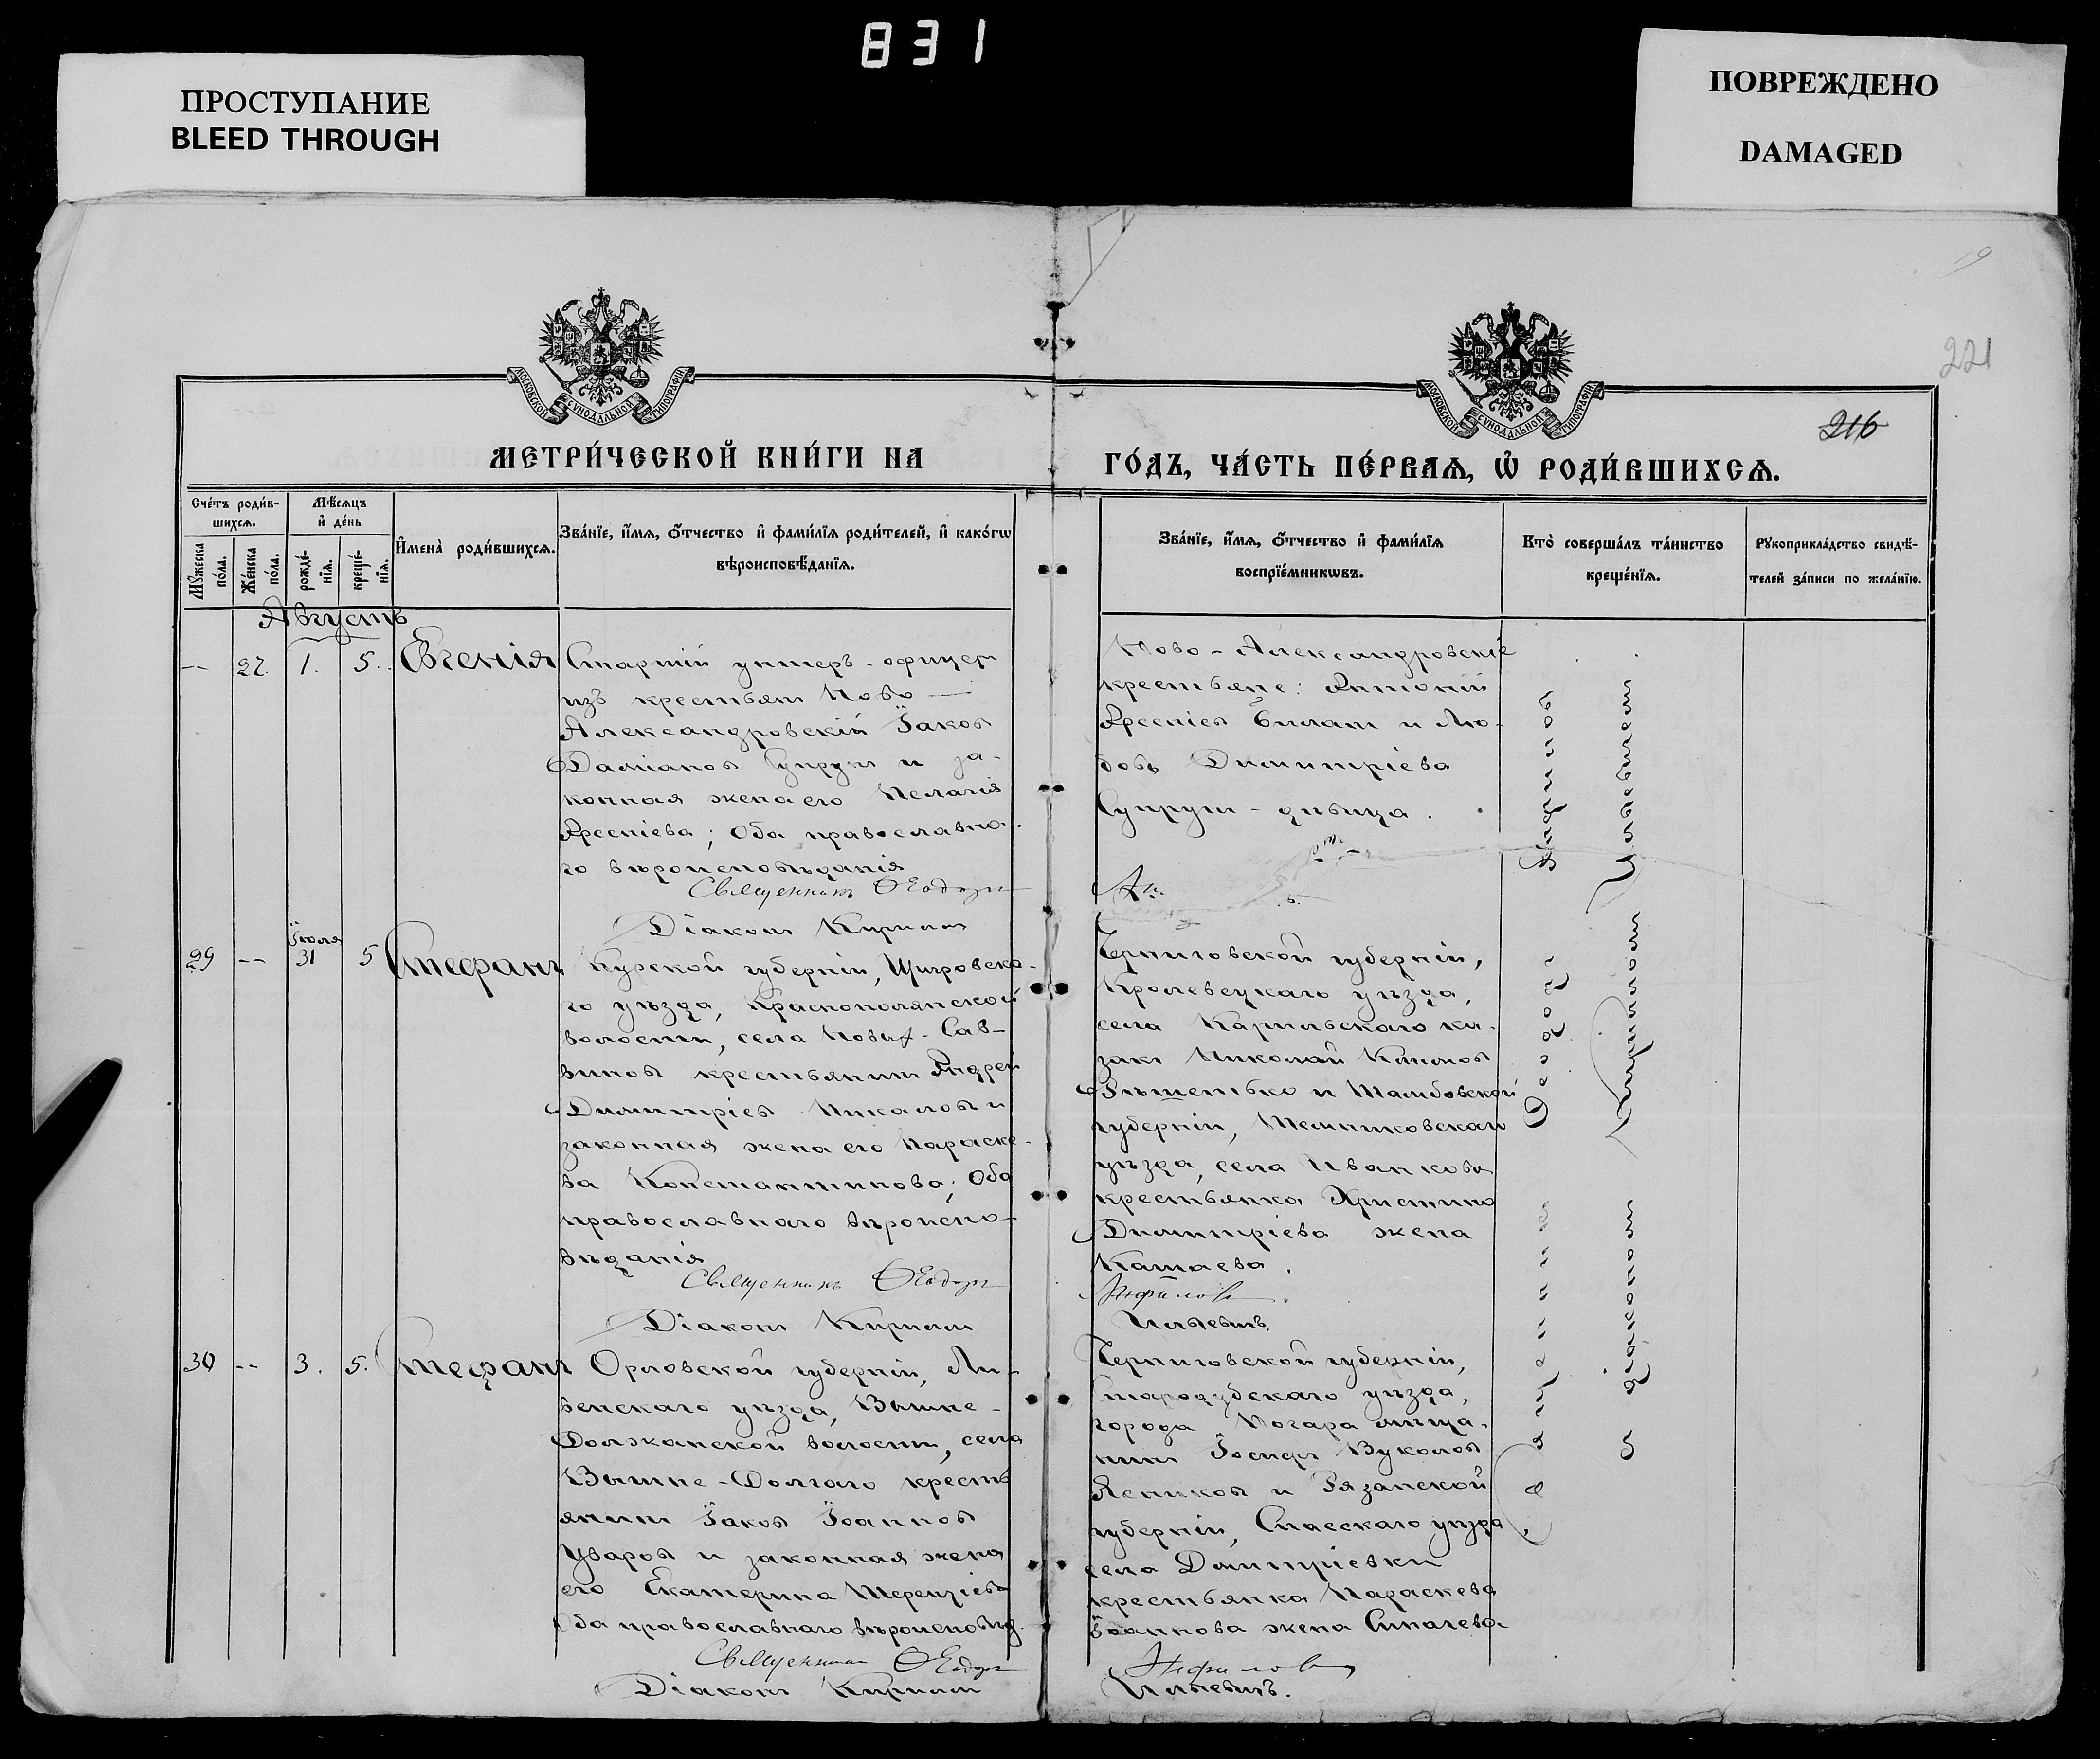 831
ПРОСТУПАНИЕ
BLEED THROUGH
ПОВРЕЖДЕНО
DAMAGED
19
221
216
МОСКОВСКОЙ СѴНОДАЛЬНОЙ ТИПОГРАФІИ
МОСКОВСКОЙ СѴНОДАЛЬНОЙ ТИПОГРАФІИ
МЕТРИ́ЧЕСКОЙ КНИ́ГИ НА
ГО́ДЪ, ЧА́СТЬ ПЕ́РВАѦ, Ѽ РОДИ́ВШИХСѦ.
Сче́тъ роди́в-
шихсѧ.
Мѣ́сѧцъ
и҆ де́нь
Мꙋ́жеска
по́ла.
Же́нска
по́ла.
рожде́-
нїѧ.
креще́-
нїѧ.
И҆мена̀ роди́вшихсѧ.
Зва́нїе, и҆́мѧ, ѻ҆́тчество и҆ фами́лїѧ роди́телей, и҆ како́гѡ
вѣроисповѣ́данїѧ.
Зва́нїе, и҆́мѧ, ѻ҆́тчество и҆ фами́лїѧ
воспрїе́мникѡвъ.
Кто̀ соверша́лъ та́инство
креще́нїѧ.
Рꙋкоприкла́дство свидѣ́-
телей за́писи по жела́нїю.
Августъ
-- 27. 1. 5. Евгенія
Старшій унтеръ-офицеръ
изъ крестьянъ Ново-
Александровскій Іаковъ
Даміановъ Супрунъ и за-
конная жена его Пелагія
Арсеніева; Оба православна-
го вѣроисповѣданія
Священникъ Ѳеодоръ
Діаконъ Кириллъ
Ново-Александровскіе
крестьяне: Антоній
Арсеніевъ Билашъ и Лю-
бовь Димитріева
Супрунъ - дѣвица.
29 -- Іюля 31 5 Стефанъ
Курской губерніи, Щигровска-
го уѣзда, Краснополянской
волости, села Новых-Сав-
виновъ крестьянинъ Андрей
Димитріевъ Николовъ и
законная жена его Параске-
ва Константинова; Оба
православнаго вѣроиспо-
вѣданія
Священникъ Ѳеодоръ
Діаконъ Кириллъ
Черниговской губерніи,
Кролевецкаго уѣзда,
села Карыльскаго ка-
закъ Николай Климовъ
Рѣшетько и Тамбовской
губерніи, Темниковскаго
уѣзда, села Иванкова
крестьянка Христина
Димитріева жена
Катаева.
Анфиловъ
Ильевичъ.
30 -- 3. 5. Стефанъ
Орловской губерніи, Ли-
венскаго уѣзда, Вышне-
Должанской волости, села
Вышне-Долгаго кресть
янинъ Іаковъ Іоанновъ
Уваровъ и законная жена
его Екатерина Терентіева
Оба православнаго вѣроисповѣд.
Священникъ Ѳеодоръ
Діаконъ Кириллъ
Черниговской губерніи,
Стародубскаго уѣзда,
города Погара мѣща-
нинъ Іосифъ Вуколовъ
Ясниковъ и Рязанской
губерніи, Спасскаго уѣзда
села Димитріевки
крестьянка Параскева
Іоаннова жена Сипачева
Анфиловъ
Ильевичъ.
Священникъ Ѳеодоръ Анфиловъ
съ діакономъ Кирилломъ Ильевичемъ